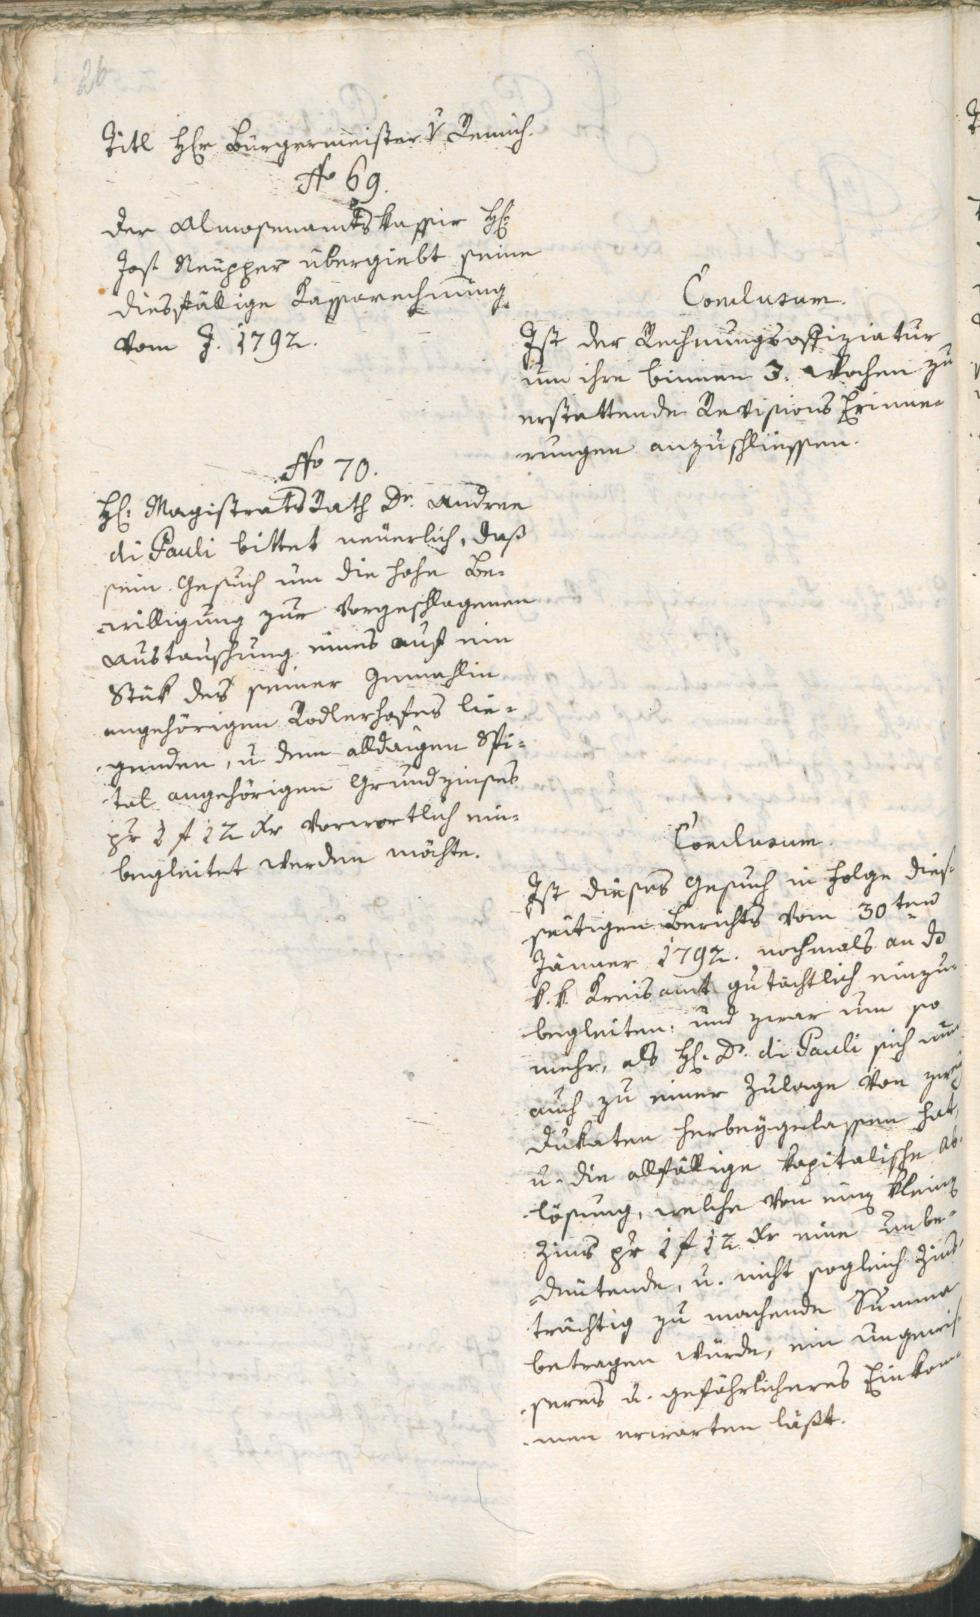 26
Titl Hℓr Bürgermeister v Remich.
No 69.
Der Almosenamts kassir H:
Jos. Neupper übergiebt seine
diesfällige Kassarechnung
vom J. 1792.
Conclusum.
Ist der Rechnungsoffiziatur
um ihre binnen 3. Wochen zu
erstattende Revisions Erinne-
rungen anzuschliessen.
No 70.
H: Magistrats Rath Dr. Andree
di Pauli bittet neuerlich, daß
sein Gesuch um die hohe Be-
willigung zur vorgeschlagenen
Austauschung eines auf ein
Stük des seiner Gemahlin
angehörigen Rodlerhofes lie-
genden, u dem alldaigen Spi-
tal angehörigen Grundzinses
pr 1 f 12 xr vorwortlich ein-
begleitet werden möchte.
Conclusum.
Ist dieses Gesuch in Folge dies-
seitigen Berichts vom 30ten
Jänner 1792. nochmals an d
k. k. Kreisamt gutächtlich einzu-
begleiten, und zwar um so
mehr, als H: Dr. di Pauli sich nun
auch zu einer Zulage von zwey
Dukaten herbeygelassen hat,
u. die allfällige kapitalische Ab-
lösung, welche von einem kleinen
Zins pr 1 f 12 xr eine unbe-
deutende, u. nicht sogleich Zins-
trächtig zu machende Summe
betragen würde, ein ungewis-
seres u. gefährlicheres Einkom-
men erwarten läßt.